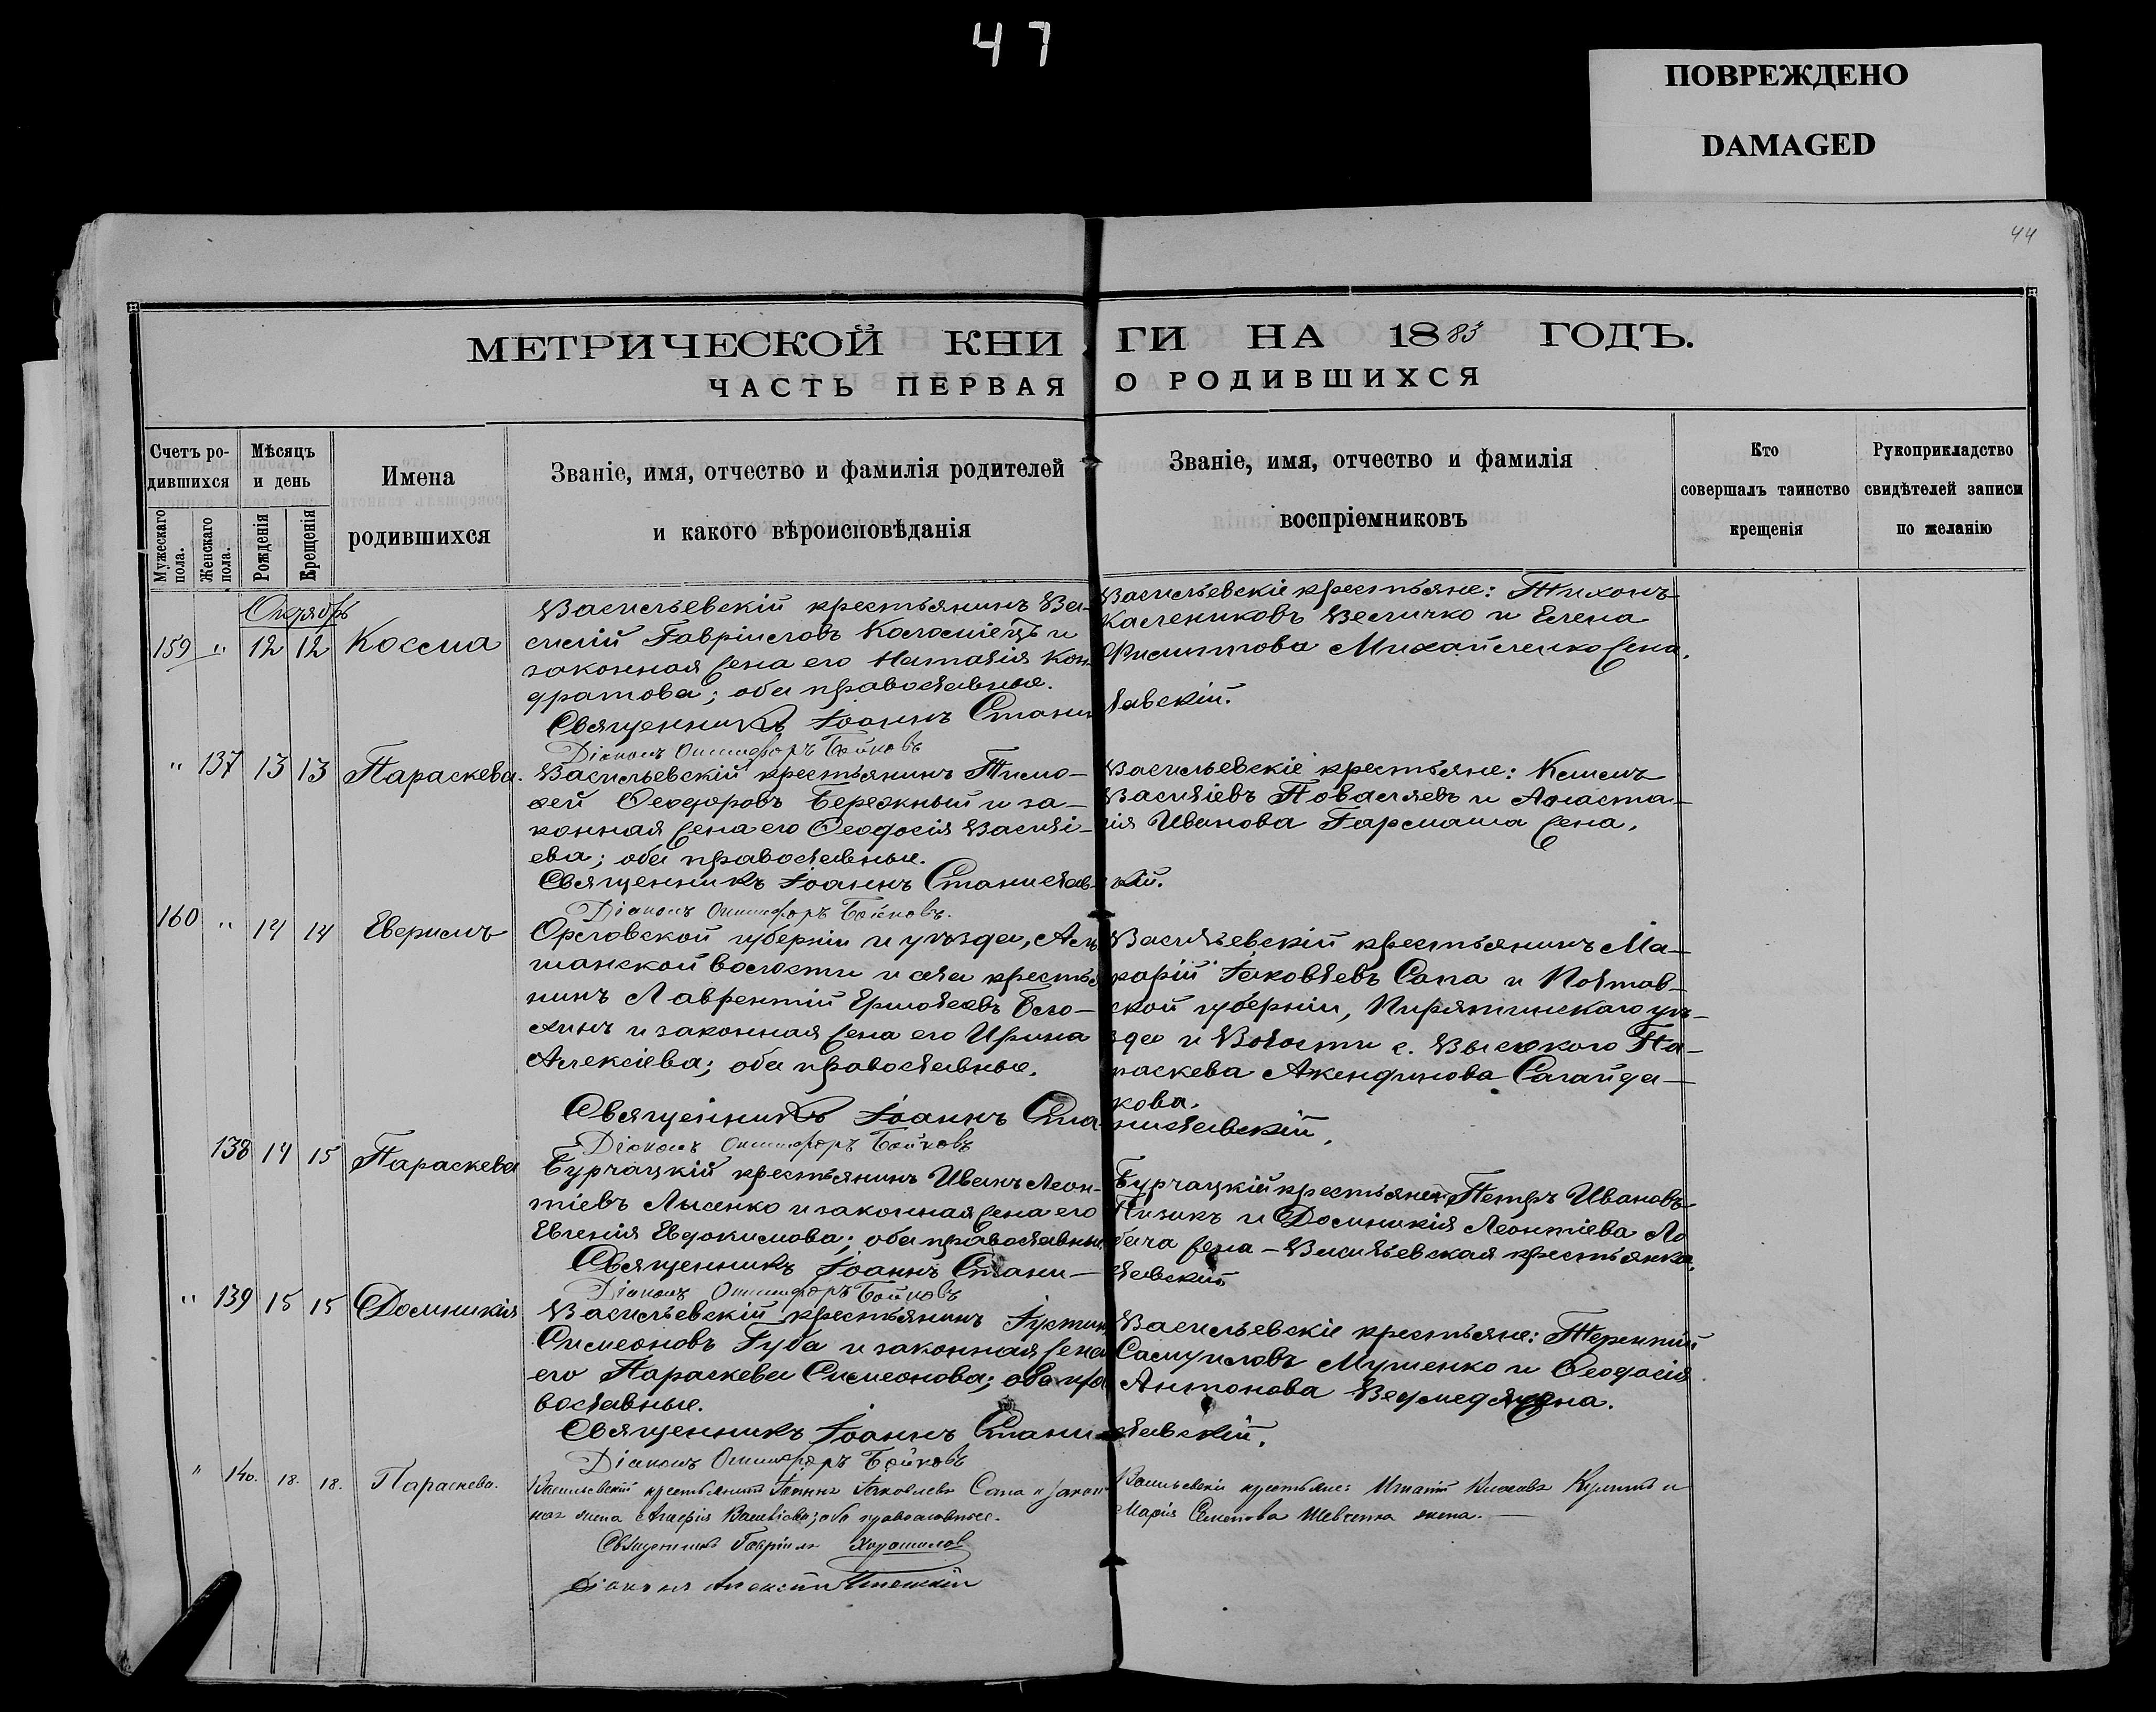 47
ПОВРЕЖДЕНО
DAMAGED
44
МЕТРИЧЕСКОЙ КНИГИ НА 1883 ГОДЪ.
ЧАСТЬ ПЕРВАЯ О РОДИВШИХСЯ
Счетъ ро-
дившихся
Мужескаго пола.
Женскаго пола.
Мѣсяцъ
и день
Рожденія
Крещенія
Имена
родившихся
Званіе, имя, отчество и фамилія родителей
и какого вѣроисповѣданія
Званіе, имя, отчество и фамилія
воспріемниковъ
Кто
совершалъ таинство
крещенія
Рукоприкладство
свидѣтелей записи
по желанію
Октябрь
159 " 12 12 Косма
Васильевскій крестьянинъ Ва-
силій Гавріиловъ Коломіецъ и
законная жена его Наталія Кон-
дратова; оба православные.
Священникъ Іоаннъ Стани
Діаконъ Онисифоръ Бойковъ
Васильевскіе крестьяне: Тихонъ
Калениковъ Величко и Елена
Филиппова Михайленко жена.
лавскій.
" 137 13 13 Параскева.
Васильевскій крестьянинъ Тимо-
фей Феодоровъ Бережный и за-
конная жена его Феодосія Василі-
ева; оба православные.
Священникъ Іоаннъ Станислав-
Діаконъ Онисифоръ Бойковъ.
Васильевскіе крестьяне:
Василіевъ Поваляевъ и Анаста-
сія Иванова Гармаша жена.
скій.
160 " 14 14
Орловской губерніи и уѣзда,
шанской волости и села крестья
нинъ Лаврентій Ермолаевъ
и законная жена его Ирина
Алексіева; оба православные.
Священникъ Іоаннъ Ста
Діаконъ Онисифоръ Бойковъ
Васильевскій крестьянинъ Ма-
карій Іаковлевъ Сапа и Полтав-
ской губерніи, Пирятинскаго уѣ-
зда и Волости с. Высокого Па-
раскева Акендинова Сагайда-
кова.
ниславскій.
138 14 15 Параскева
Бурчацкій крестьянинъ Иванъ Леон-
тіевъ Лысенко и законная жена его
Евгенія Евдокимова; оба православные
Священникъ Іоаннъ Стани-
Діаконъ Онисифоръ Бойковъ
Бурчацкій крестьянинъ Петръ Ивановъ
Пизикъ и Домникія Леонтіева Ло
бача жена - Васильевская крестьянка.
лавскій
" 139 15 15 Домникія
Васильевскій крестьянинъ Іустинъ
Симеоновъ Губа и законная жена
его Параскева Симеонова; оба пра
вославные.
Священникъ Іоаннъ Стани
Діаконъ Онисифоръ Бойковъ
Васильевскіе крестьяне: Терентій
Самуиловъ Мушенко и Феодосія
Антонова Ведмедя жена.
славскій.
" 140. 18. 18. Параскева.
Васильевскій крестьянинъ Іоаннъ Іаковлевъ Сапа и закон
ная жена Агафія Василіева; оба православные.
Священникъ Гавріилъ Хорошилов
Діаконъ Алексій
Васильевскіе крестьяне: Игнатій и
Марія Семенова Шевченка жена.